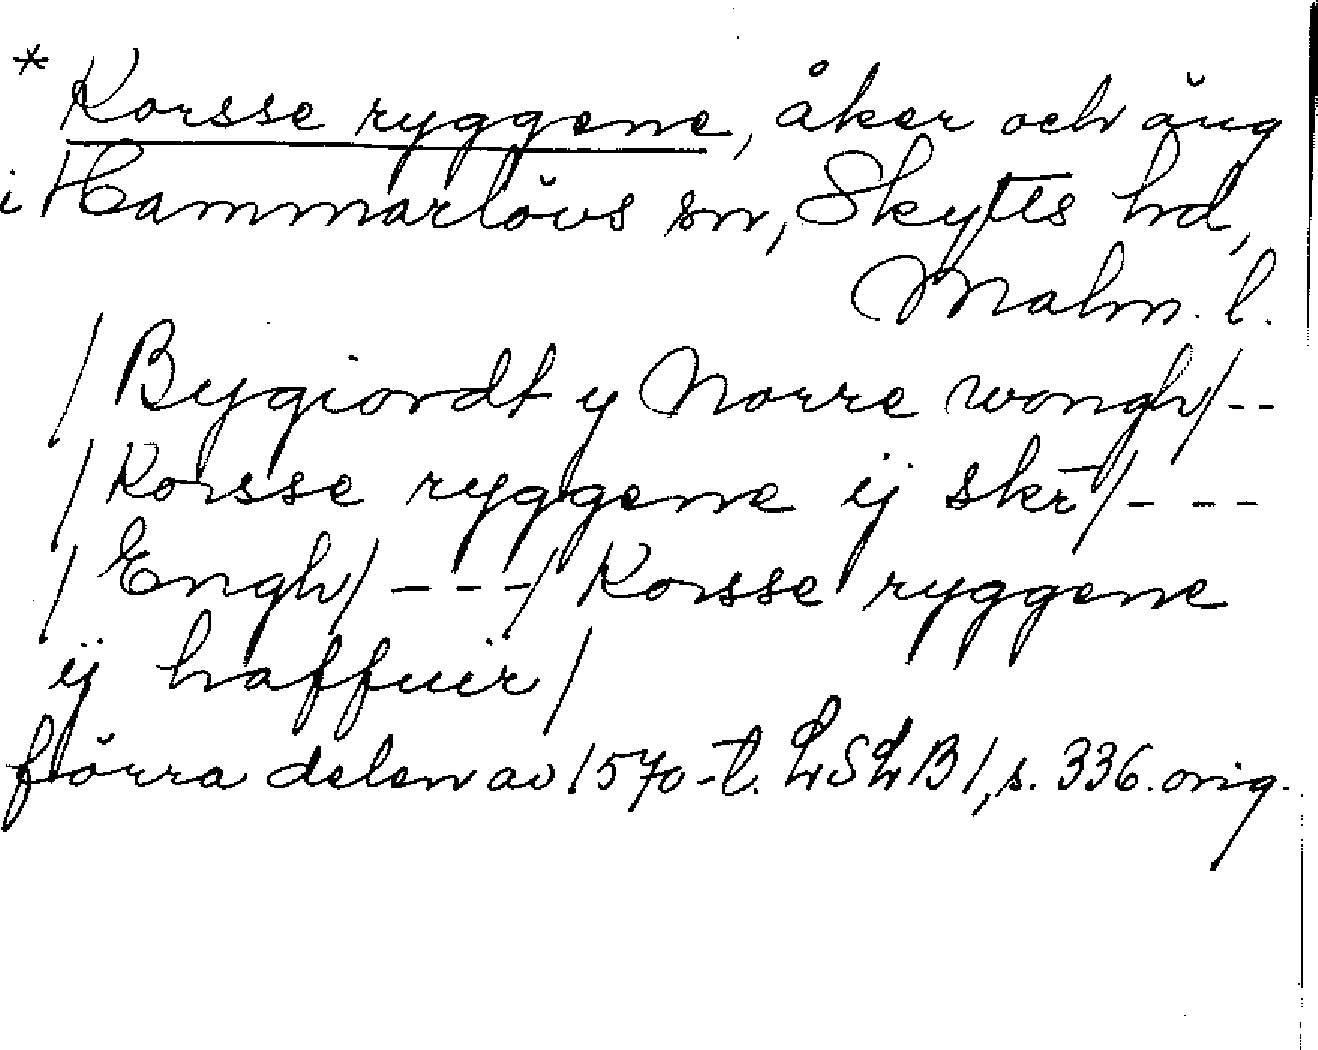 * Korsse ryggene, åker och äng
i Hammarlövs sn, Skytts hd,
Malm. l.
/ Bygiordt y Norre wongh/--
/ Korsse ryggene ij skr̄/---
/ Engh/ ---/ Korsse ryggene
ij haffuer/
förra delen av 1570-t. LSLB 1, s. 336. orig.